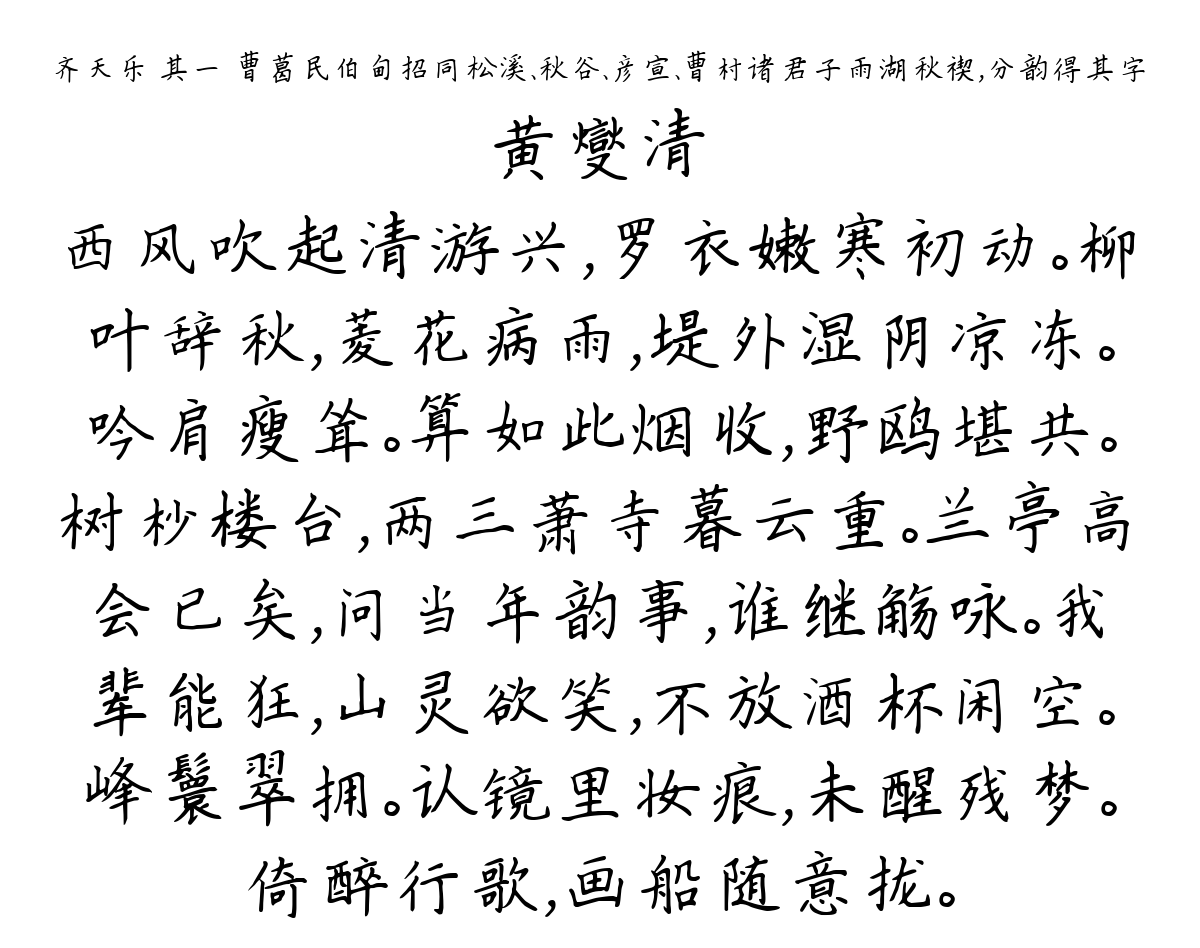 齐天乐 其一 曹葛民伯甸招同松溪、秋谷、彦宣、曹村诸君子雨湖秋禊,分韵得其字
黄燮清
西风吹起清游兴,罗衣嫩寒初动。柳
叶辞秋,菱花病雨,堤外湿阴凉冻。
吟肩瘦耸。算如此烟收,野鸥堪共。
树杪楼台,两三萧寺暮云重。兰亭高
会已矣,问当年韵事,谁继觞咏。我
辈能狂,山灵欲笑,不放酒杯闲空。
峰鬟翠拥。认镜里妆痕,未醒残梦。
倚醉行歌,画船随意拢。